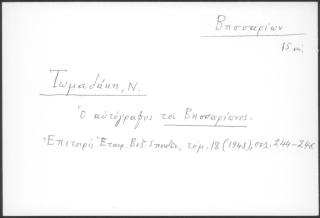 Βησσαρίων
15 αι.
Τωμαδάκη, Ν.
Ὁ αὐτόγραφος τοῦ Βησσαρίωνος.
Ἐπετηρίς Ἑταιρ. Βυζ. Σπουδῶν, τόμ. 18 (1948), σελ. 244-246